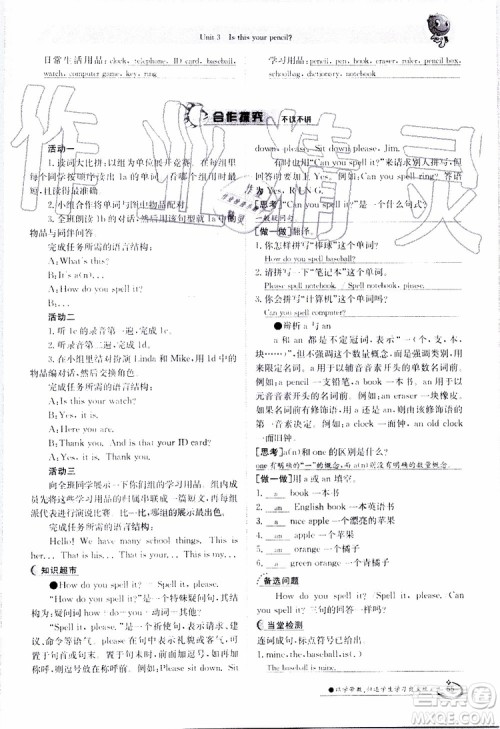 Unit 3 Is this your pencil?
日常生活用品: clock, telephone, ID card, baseball,
watch, computer game, key, ring
学习用品: pencil, pen, book, eraser, ruler, pencil box,
schoolbag, dictionary, notebook
合作探究 不议不讲
活动一
1. 读词大比拼:以组为单位展开竞赛。
2. 小组合作将单词与图中物品配对。
3. 全班朗读1b的对话,带入1a图中的
物品与同伴对话。
完成任务所需的语言结构:
A: What's this?
B: It's a(n)
A: How do you spell it?
B: ...
活动二
1. 听1c的录音第一遍,完成1c。
2. 听录音第二遍,完成1d。
3. 在小组里扮演Linda和Mike,用1d的
物品编对话,派代表全班展示。
完成任务所需的语言结构:
A: Is this your
B: Yes, it is.
A: Here you are.
B: Thank you. And is that your ID card?
A: Yes, it is. Thank you.
活动三
向全班同学展示一下你们组的学习用品。组
员先将这些学习用品的归属串成一篇短文,再每
组派代表作介绍。
完成任务所需的语言结构:
Hello! We have many school things. This is
They are
知识超市
●How do you spell it? Spell it, please.
How do you spell it? 是一个特殊疑问句,
结构为:疑问词how+do+you+动词原形。
Spell it, please. 是一个祈使句,表示请求、建
议、命令等语气,通常以动词原形开头,please可
置于句首或句尾,置于句尾时,前面需用逗号隔
开。若有称呼,一般置于句首或句尾,如果后面
有称呼,其前应用逗号隔开。例如:Please sit
down, please. Sit down, please, Jim.
有时用“Can you spell it?”来请求别人拼写,但
回答的时候要加上Yes。例如: Can you spell ring?
Yes, R-I-N-G.
[思考]“Can you spell it?”是一个什么句式?
一般疑问句。
[做一做]翻译。
1. 你怎样拼写“棒球”这个单词?
How do you spell baseball?
2. 请拼写一下“笔记本”这个单词。
Please spell notebook. / Spell notebook, please.
3. 你会拼写“计算机”这个单词吗?
Can you spell computer?
●辨析a与an
a和an都是不定冠词,表示“一(个、支、本、
块……)”,但不强调这个数量概念,而重在表示
泛指。a用于以辅音音素开头的名词前面。
例如:a pencil 一支铅笔。an用于以
元音音素开头的名词前。例如:an eraser 一块橡皮。
如果名词前有修饰语,那么则根据修饰语的
第一个音素来决定。例如: an old clock 一
面旧钟。
[思考]a(n)和one的区别是什么?
one有明确的“一”的概念,而a(n)则没有明确的数量概念。
[做一做]用a或an填空。
1. a book 一本书
2. an English book 一本英语书
3. a nice apple 一个漂亮的苹果
4. an apple 一个苹果
5. an orange 一个橘子
6. a green orange 一个青橘子
备选问题
How do you spell it? Spell it, please. Can
you spell it, please? 三句的回答一样吗?
当堂检测
连词成句,标点符号已给出。
1. mine, the, baseball, is (.)
The baseball is mine.